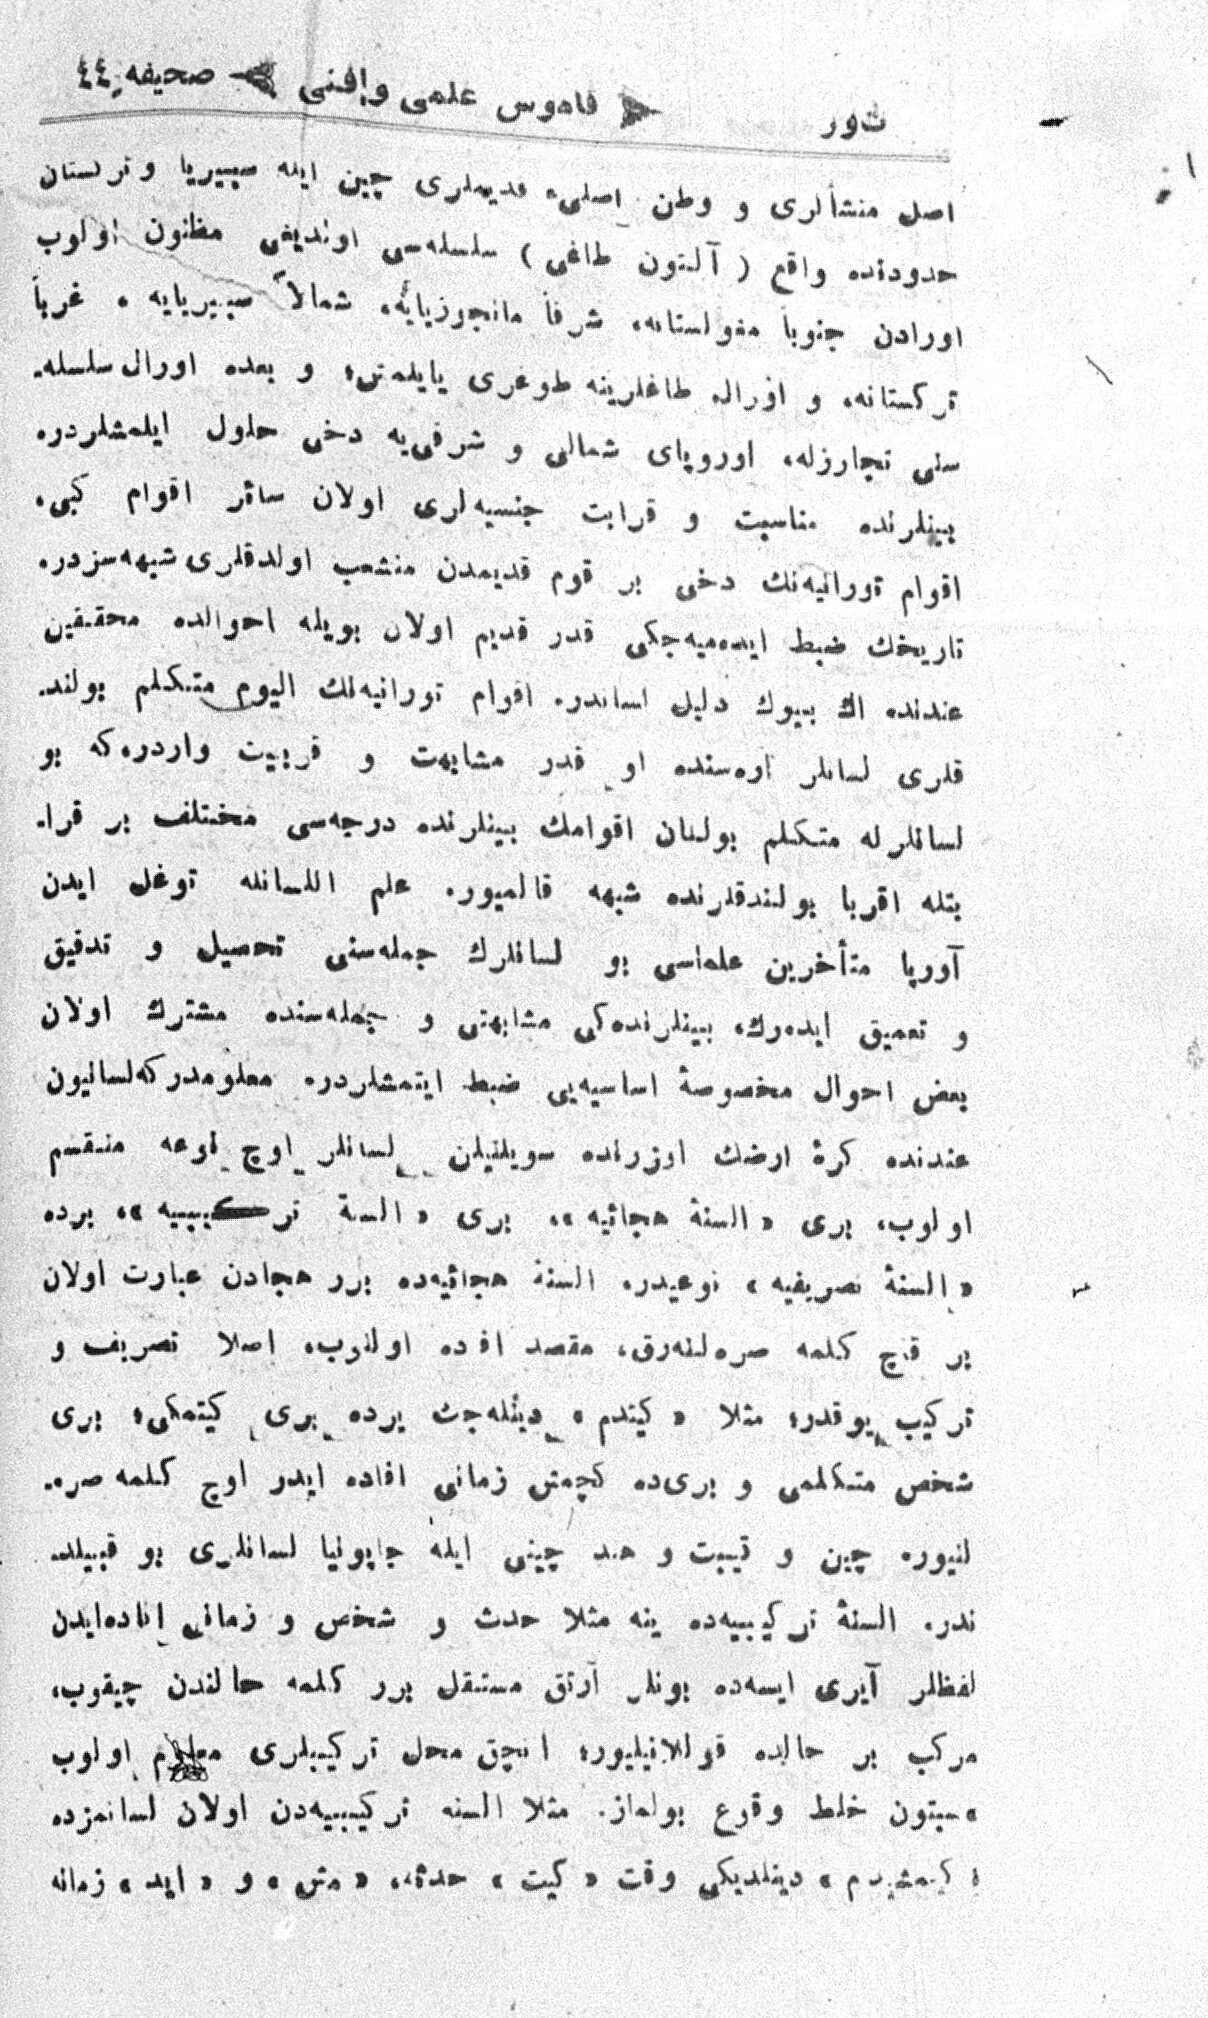 تور قاموس علمی و فنی صحیفه ٤٤
اصل منشألری و وطن اصلیء قدیملری چین ایله سیبیریا و ترکستان
حدودنده واقع ( آلتون طاغی ) سلسله‌سی اولدیغی مظنون اولوب
اورادن جنوباً مغولستانه، شرقاً مانجوزیایه، شمالاً سیبیریایه ، غرباً
ترکستانه، و اورال طاغلرینه طوغری یایلمش؛ و بعده اورال سلسله‌-
سنی تجاوزله، اوروپای شمالی و شرقی‌یه دخی حلول ایلمشلردر.
بینلرنده مناسبت و قرابت جنسیه‌لری اولان سائر اقوام کبی،
اقوام تورانیه‌نك دخی بر قوم قدیمدن منشعب اولدقلری شبهه‌سزدر.
تاریخك ضبط ایده‌میه‌جکی قدر قدیم اولان بویله احوالده محققین
عندنده اك بیوك دلیل لساندر. اقوام تورانیه‌نك الیوم متکلم بولند-
قلری لسانلر آره‌سنده او قدر مشابهت و قربیت واردرکه بو
لسانلرله متکلم بولنان اقوامك بینلرنده درجه‌سی مختلف بر قرا-
بتله اقربا بولندقلرنده شبهه قالمیور. علم اللسانله توغل ایدن
آوروپا متأخرین علماسی بو لسانلرك جمله‌سنی تحصیل و تدقیق
و تعمیق ایده‌رك، بینلرنده‌کی مشابهتی و جمله‌سنده مشترك اولان
بعض احوال مخصوصۀ اساسیه‌یی ضبط ایتمشلردر. معلومدرکه لسانیون
عندنده کرۀ ارضك اوزرنده سویلنیلن لسانلر اوچ نوعه منقسم
اولوب، بری « السنۀ هجائیه »، بری « السنۀ ترکیبیه »، برده
« السنۀ تصریفیه » نوعیدر. السنۀ هجائیه‌ده برر هجادن عبارت اولان
بر قاچ کلمه صره‌لنه‌رق، مقصد افاده اولنوب، اصلا تصریف و
ترکیب یوقدر؛ مثلا « کیتدم » دینله‌جك یرده بری کیتمکی؛ بری
شخص متکلمی و بری‌ده کچمش زمانی افاده ایدر اوچ کلمه صره-
لنیور. چین و تیبت و هند چینی ایله جاپونیا لسانلری بو قبیلد-
ندر. السنۀ ترکیبیه‌ده ینه مثلا حدث و شخص و زمانی افاده‌ایدن
لفظلر آیری ایسه‌ده بونلر آرتق مستقل برر کلمه حالندن چیقوب،
مرکب بر حالده قوللانیلیور؛ انجق محل ترکیبلری معلوم اولوب
بتون خلط وقوع بولماز. مثلا السنه ترکیبیه‌دن اولان لسانمزده
« کیتمشیدم » دینلدیکی وقت « کیت » حدثه، « مش » و « اید » زمانه